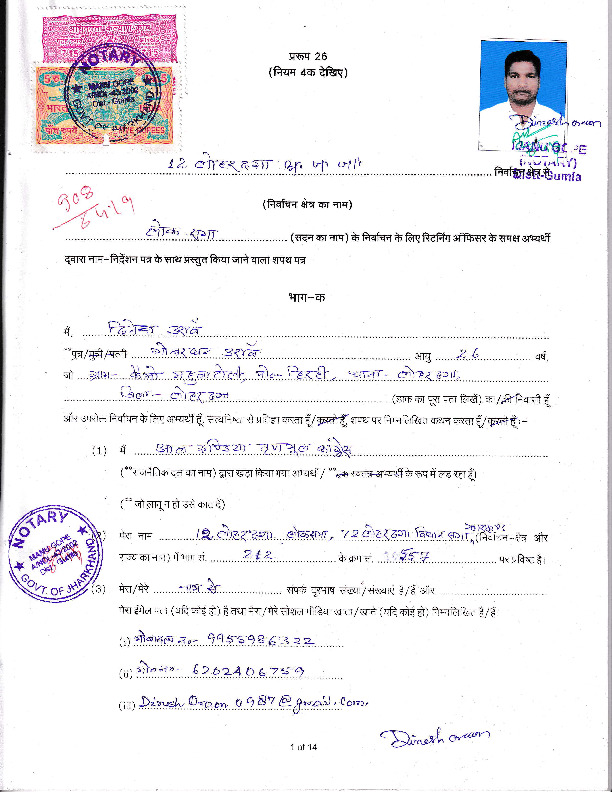 NOTARY
MANU GOPE
Dist - Gumla
GOVT. OF JHARKHAND
प्ररूप 26
(नियम 4क देखिए)
Dinesh oraon
Distt-Gumla
12 लोहरदगा अ० ज० जा० निर्वाचन क्षेत्र से
(निर्वाचन क्षेत्र का नाम)
908
लोक सभा (सदन का नाम) के निर्वाचन के लिए रिटर्निंग ऑफिसर के समक्ष अभ्यर्थी
द्वारा नाम-निर्देशन पत्र के साथ प्रस्तुत किया जाने वाला शपथ पत्र
भाग-क
मैं दिनेश उराँव
**पुत्र/पुत्री/पत्नी सोमरदास उराँव आयु 26 वर्ष,
जो ग्राम- टोली, पो०- हिरही, थाना- लोहरदगा,
जिला- लोहरदगा (डाक का पूरा पता लिखें) का /की निवासी हूँ
और उपरोक्त निर्वाचन के लिए अभ्यर्थी हूँ, सत्यनिष्ठा से प्रतिज्ञा करता हूँ/करती हूँ, शपथ पर निम्नलिखित कथन करता हूँ/करती हूँ:-
(1) मैं आल इण्डिया तृणमूल कांग्रेस
(**राजनैतिक दल का नाम) द्वारा खड़ा किया गया अभ्यर्थी / **एक स्वतंत्र अभ्यर्थी के रूप में लड़ रहा हूँ)
(**जो लागू न हो उसे काट दें)
NOTARY
MANU GOPE
GOVT. OF JHARKHAND
(2) मेरा नाम 12 लोहरदगा लोकसभा, 72 लोहरदगा विधान सभा, झारखण्ड (निर्वाचन-क्षेत्र और
राज्य का नाम) में भाग सं. 242 के क्रम सं. पर प्रविष्ट है।
(3) मेरा/मेरे संपर्क दूरभाष संख्या/संख्याएं है/हैं और
मेरा ईमेल पता (यदि कोई हो) है तथा मेरा/मेरे सोशल मीडिया खाता/खाते (यदि कोई हो) निम्नलिखित है/हैं
(i) मोबाइल न०- 9955986322
(ii) मो०न०- 6202406759
(iii) Dinesh Oraon 0987@gmail.com.
Dinesh oraon
1 of 14